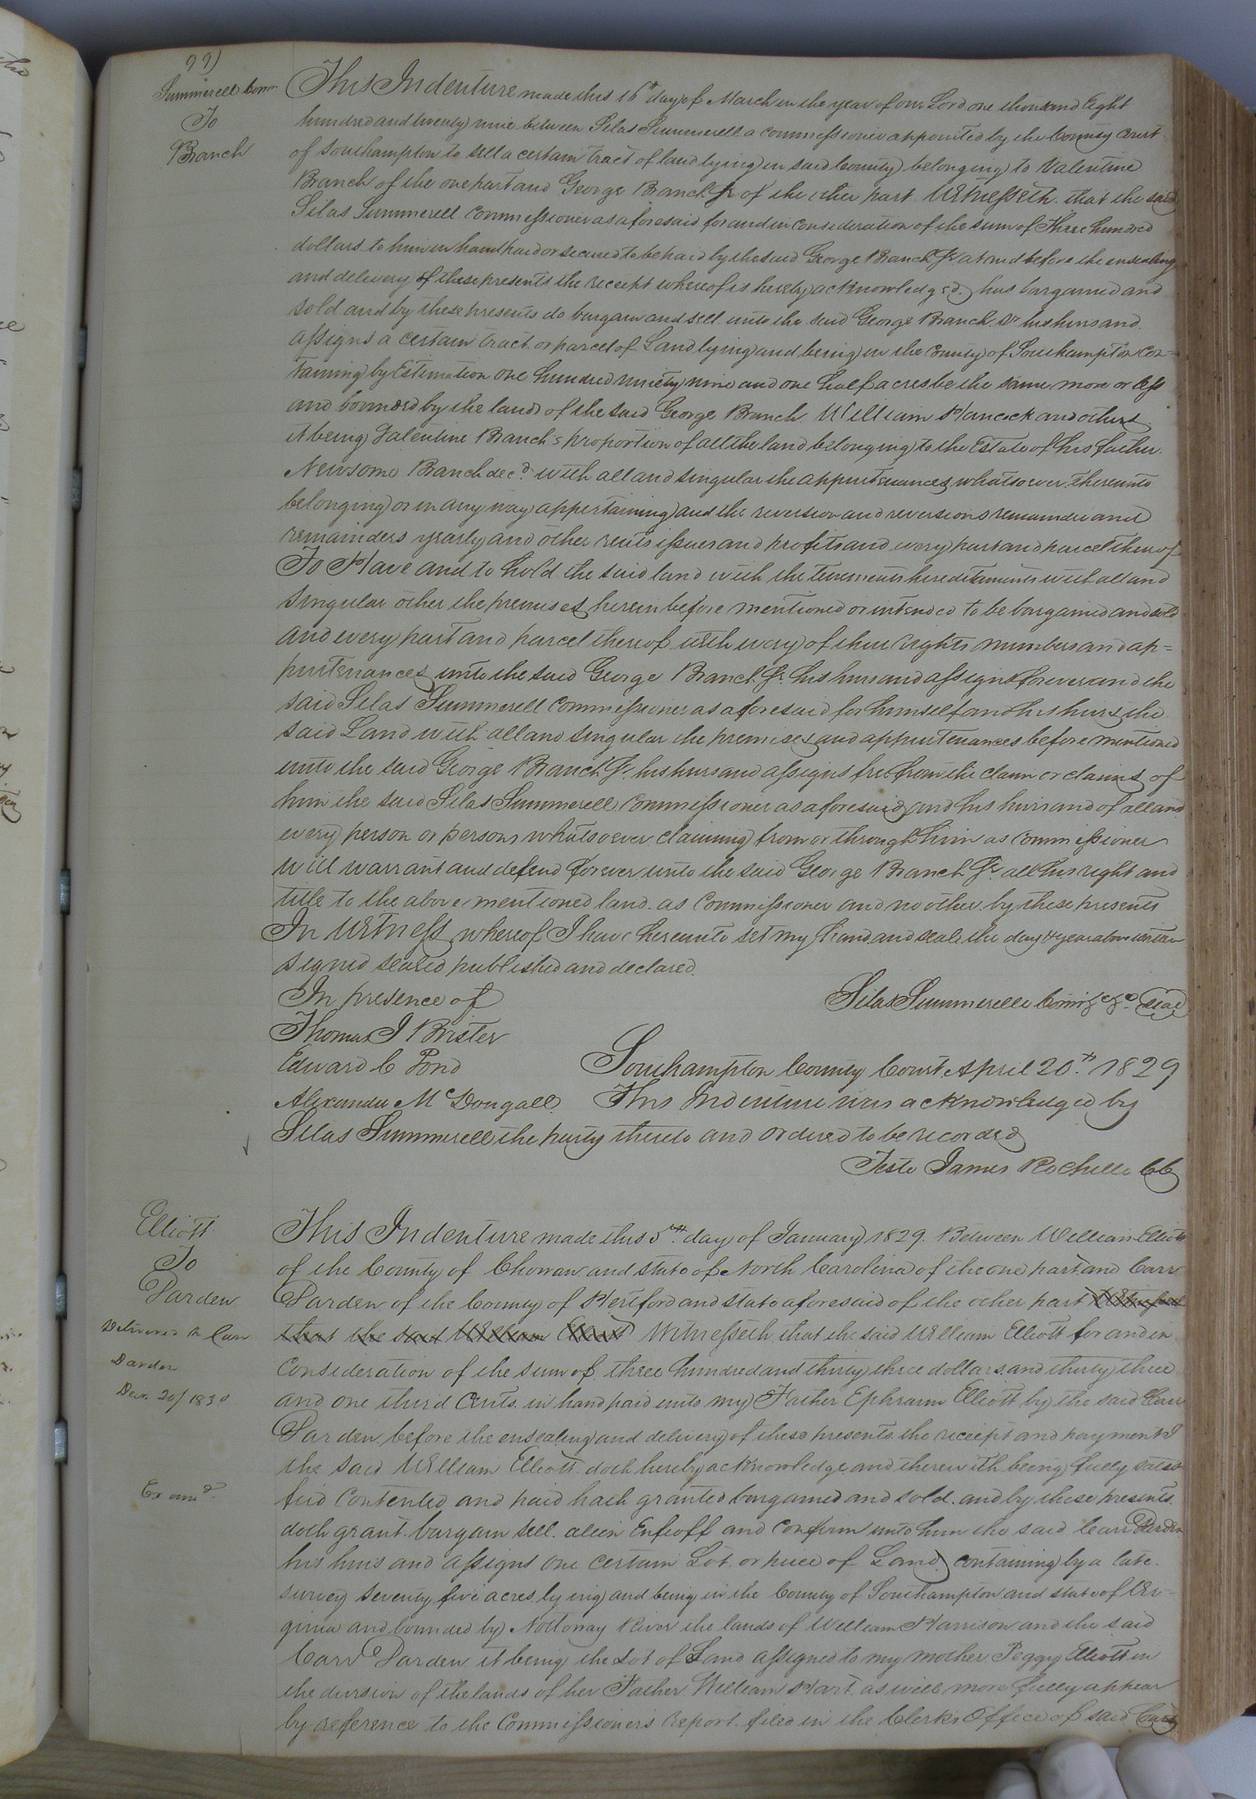 99)
Summerell Comr
To
Branch
This Indenture made this 16th day of March in the year of our Lord one thousand Eight
hundred and twenty nine between Silas Summerell a commissioner appointed by the County Court
of Southampton to sell a certain tract of land lying in said County belonging to Valentine
Branch of the one part and George Branch Jr of the other part Witnesseth that the said
Silas Summerell Commissioner as aforesaid for and in consideration of the sum of Three hundred
dollars to him in hand paid or secured to be paid by the said George Branch Jr at and before the ensealing
and delivery of these presents the receipt whereof is hereby acknowledged has bargained and
sold and by these presents do bargain and sell unto the said George Branch Jr his heirs and
assigns a certain tract or parcel of Land lying and being in the County of Southampton con=
taining by Estimation one hundred ninety nine and one half acres be the same more or less
and bounded by the lands of the said George Branch William Hancock and others
it being Valentine Branch's proportion of all the land belonging to the Estate of his father
Newsome Branch decd with all and singular the appurtenances whatsoever thereunto
belonging or in any way appertaining and the reversion and reversions remainder and
remainders yearly and other rents issues and profits and every part and parcel thereof
To Have and to hold the said land with the tenements hereditaments with all and
singular other the premises herein before mentioned or intended to be bargained and sold
and every part and parcel thereof with every of their rights members and ap=
purtenances unto the said George Branch Jr his heirs and assigns forever and the
said Silas Summerell Commissioner as aforesaid for himself and his heirs the
said Land with all and singular the premises and appurtenances before mentioned
unto the said George Branch Jr his heirs and assigns free from the claim or claims of
him the said Silas Summerell Commissioner as aforesaid and his heirs and of all and
every person or persons whatsoever claiming from or through him as Commissioner
will warrant and defend forever unto the said George Branch Jr all his right and
title to the above mentioned land as Commissioner and no other by these presents
In Witness whereof I have hereunto set my hand and seal the day & year above written
signed sealed published and declared
In presence of
Silas Summerell Comr &c &c Seal
Thomas J Brister
Edward C Pond
Southampton County Court April 20th 1829
Alexander McDougall This Indenture was acknowledged by
Silas Summerell the party thereto and ordered to be recorded
Teste James Rochelle CC
Elliott
To
Darden
Delivered to Carr
Darden
Decr 20/1830
Examd
This Indenture made this 5th day of January 1829 Between William Elliott
of the County of Chowan and state of North Carolina of the one part and Carr
Darden of the County of Hertford and state aforesaid of the other part Witnesseth
that the said William Witnesseth that the said William Elliott for and in
Consideration of the sum of three hundred and thirty three dollars and thirty three
and one third Cents in hand paid unto my Father Ephraim Elliott by the said Carr
Darden before the ensealing and delivery of these presents the receipt and payment I
the said William Elliott doth hereby acknowledge and therewith being fully satis
fied Contented and paid hath granted bargained and sold and by these presents
doth grant bargain sell alien Enfeoff and confirm unto him the said Carr Darden
his heirs and assigns one certain Lot or piece of Land containing by a late
survey seventy five acres lying and being in the County of Southampton and state of Vir-
ginia and bounded by Nottoway River the lands of William Harrison and the said
Carr Darden it being the Lot of Land assigned to my mother Peggy Elliott in
the division of the lands of her Father William Hart as will more fully appear
by reference to the Commissioners report filed in the Clerks Office of said County